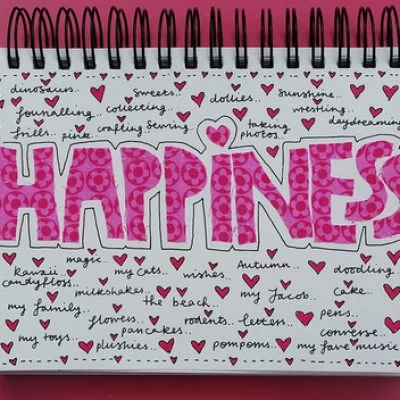 dinosaurs.. sweets.. dollies.. sunshine..
journalling.. collecting.. wrestling..
frills.. pink.. crafting sewing.. taking photos.. daydreaming
HAPPINESS
magic.. my cats.. wishes.. Autumn.. doodling
kawaii.. candyfloss..
milkshakes.. the beach.. my Jacob.. cake..
my family.. flowers.. rodents.. letters.. pens..
my toys.. pancakes.. converse..
plushies.. pompoms.. my fave music